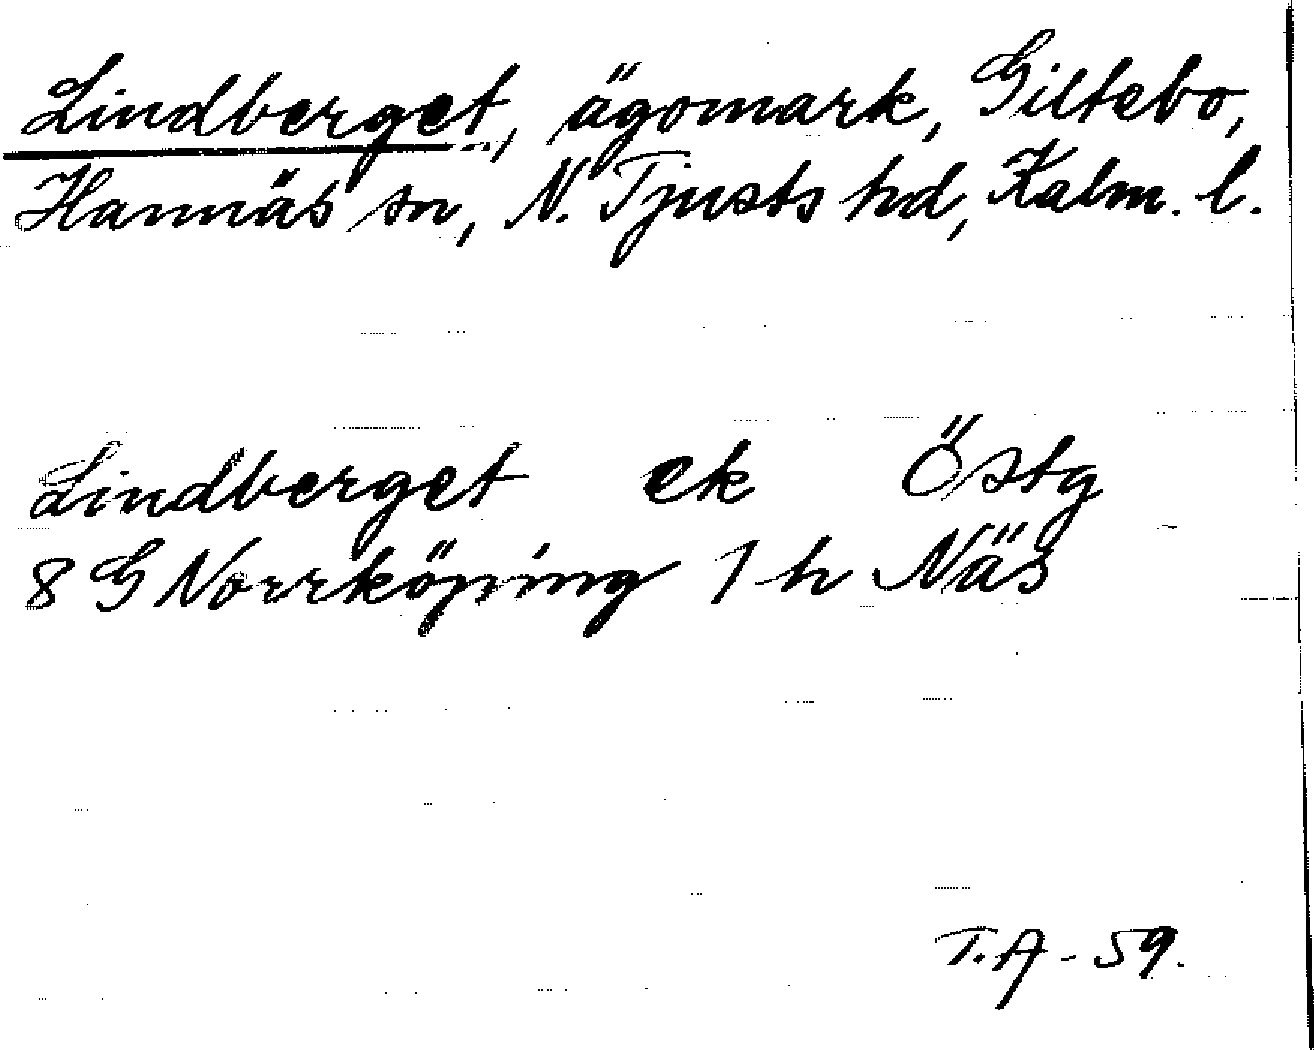 Lindberget, ägomark, Giltebo,
Hannäs sn, N. Tjusts hd, Kalm. l.
Lindberget ek Östg
8 G Norrköping 1 h Näs
T.A - 59.